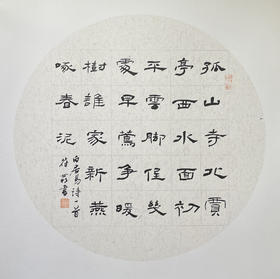 孤山寺北賈
亭西水面初
平雲脚低幾
處早鶯争暖
樹誰家新燕
啄春泥
白居易詩一首
書